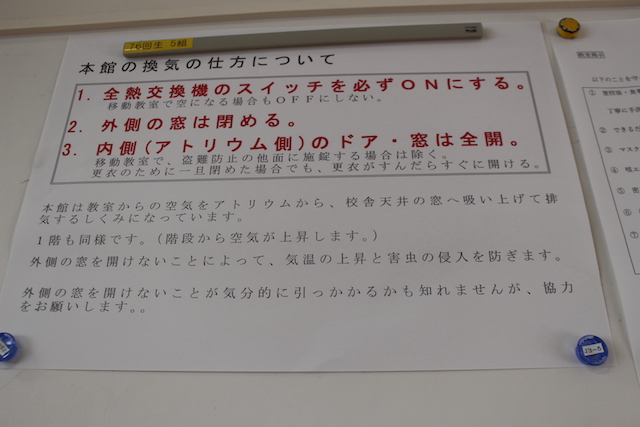 76回生 5組
本館の換気の仕方について
1. 全熱交換機のスイッチを必ずONにする。
移動教室で空になる場合もOFFにしない。
2. 外側の窓は閉める。
3. 内側(アトリウム側)のドア・窓は全開。
移動教室で、盗難防止の他面に施錠する場合は除く。
更衣のために一旦閉めた場合でも、更衣がすんだらすぐに開ける。
本館は教室からの空気をアトリウムから、校舎天井の窓へ吸い上げて排
気するしくみになっています。
1階も同様です。(階段から空気が上昇します。)
外側の窓を開けないことによって、気温の上昇と害虫の侵入を防ぎます。
外側の窓を開けないことが気分的に引っかかるかも知れませんが、協力
をお願いします。。
J3-5
教室掲示
以下のことを守
①
②
③ マスク
④
⑤
⑥
⑦